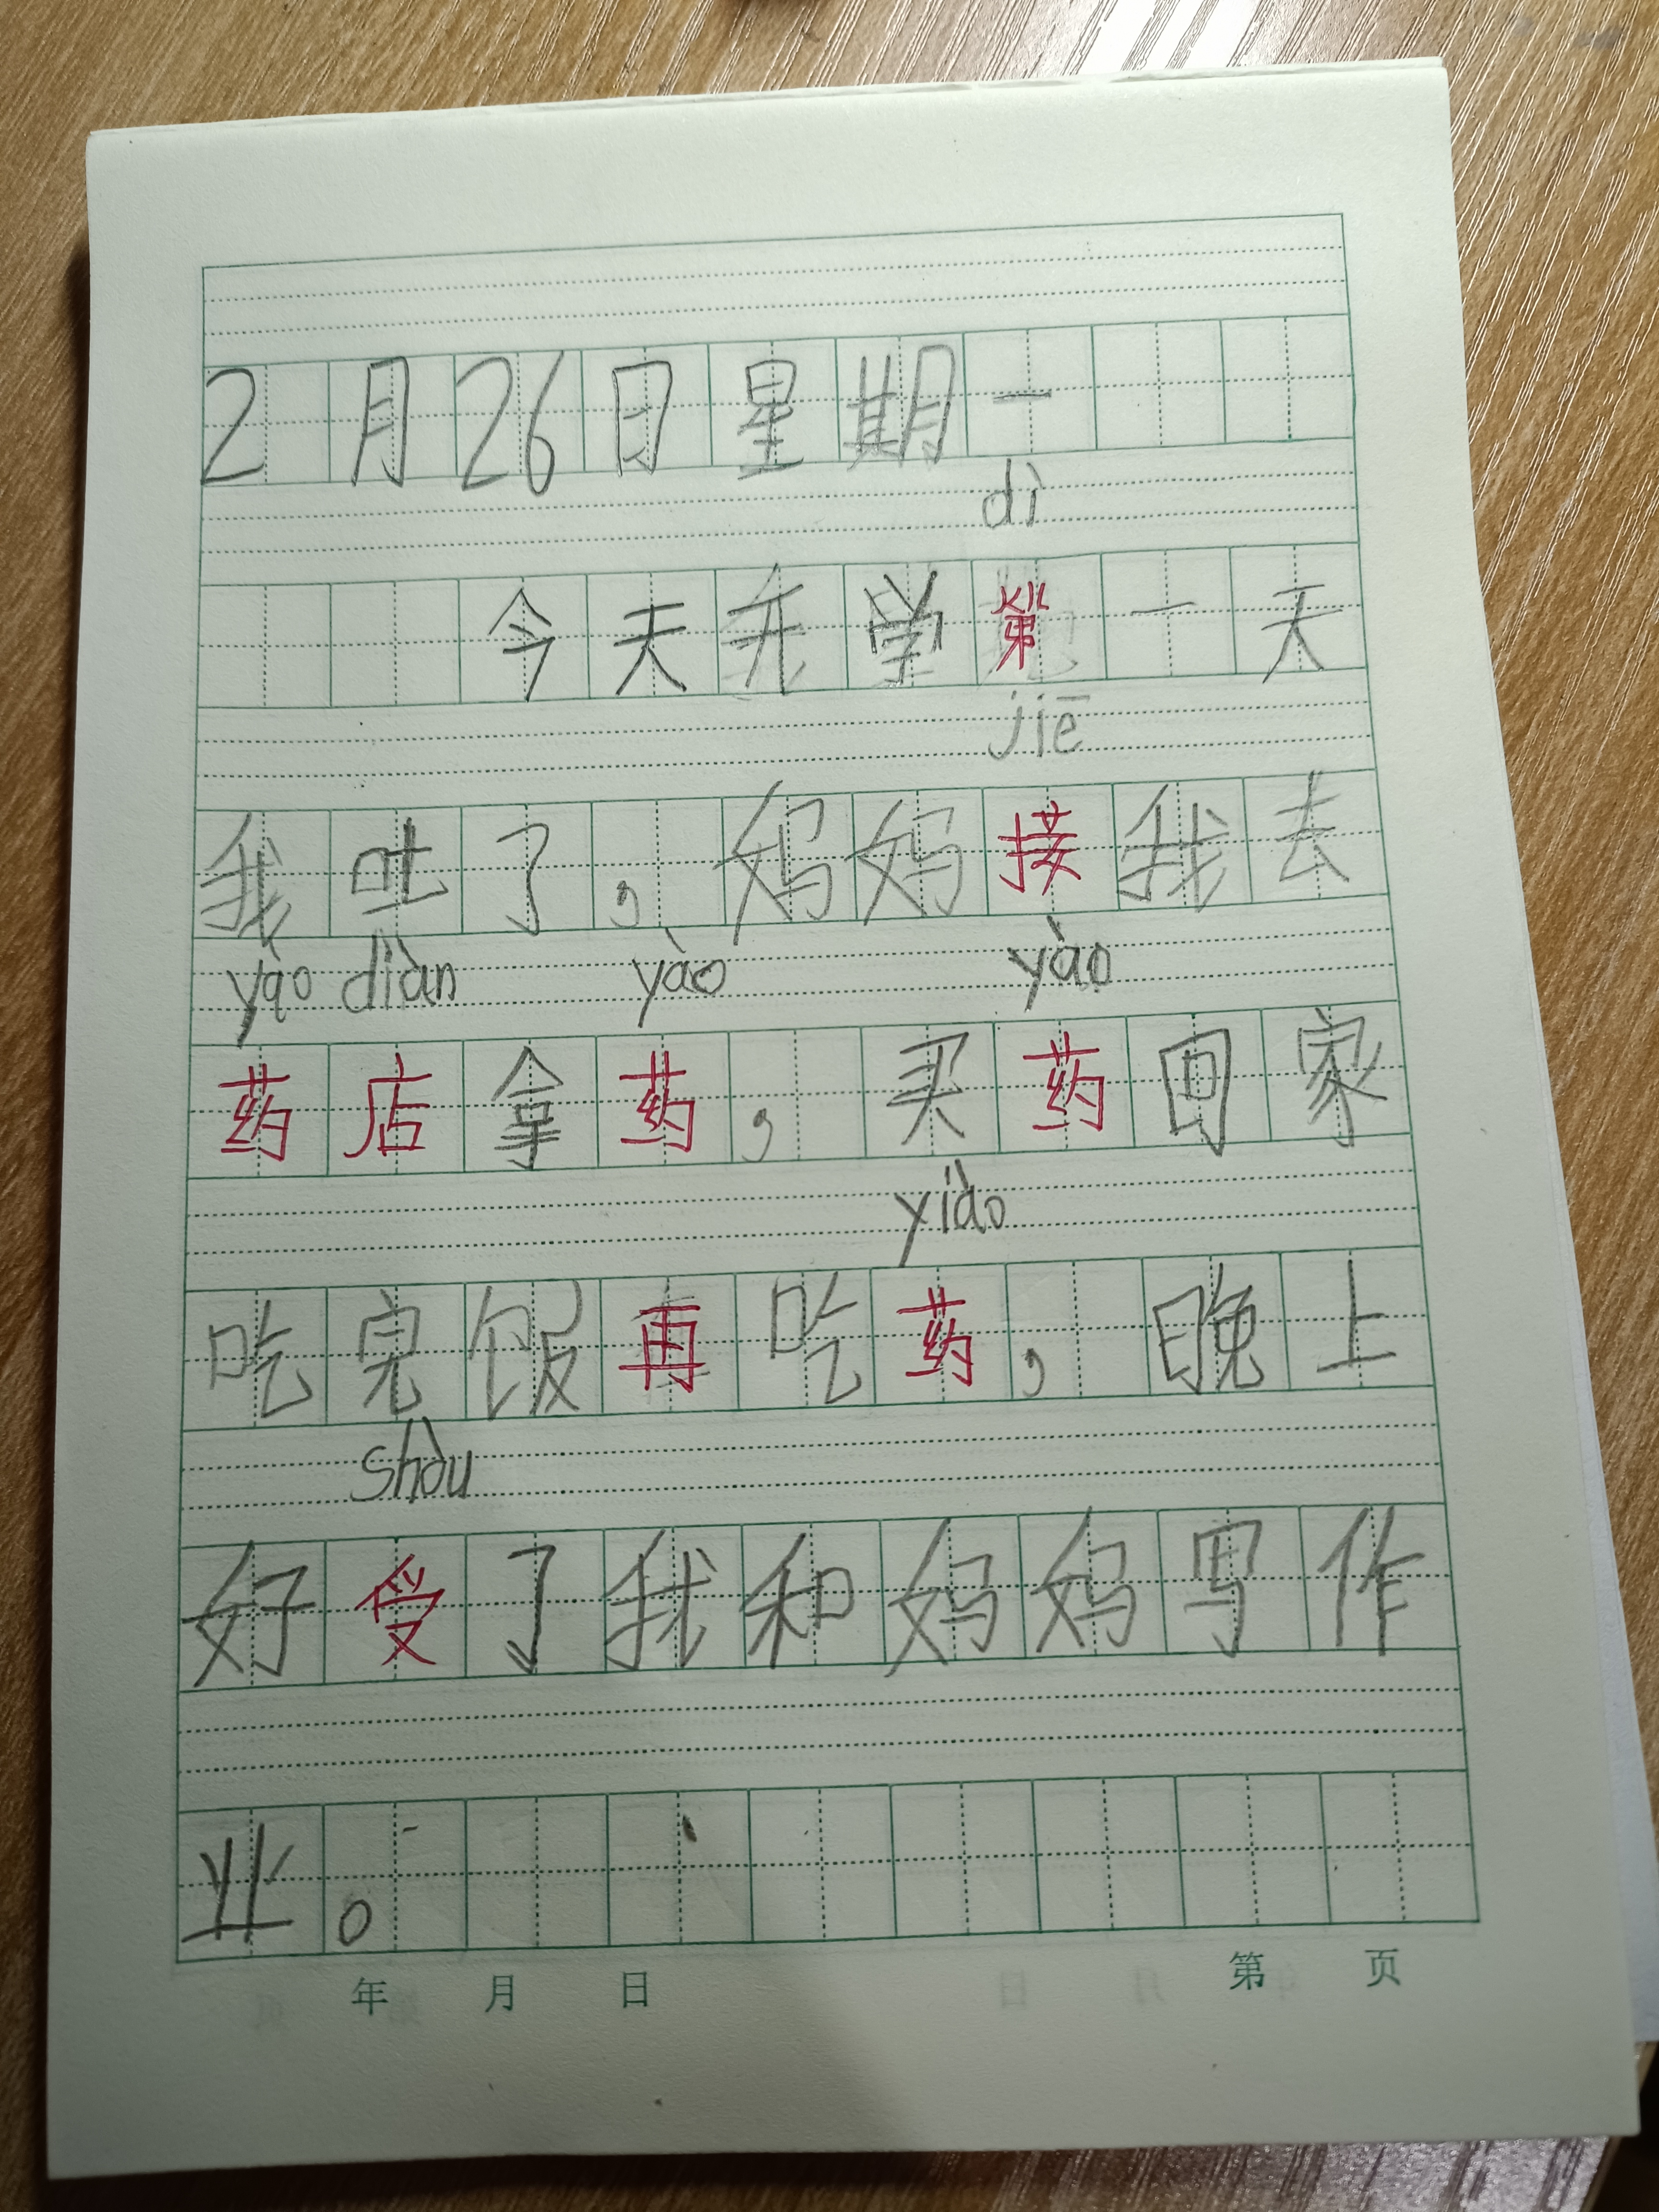 2月26日星期一
dì
今天开学第一天
jiē
我吐了，妈妈接我去
yào diàn yào yào
药店拿药，买药回家
yiào
吃完饭再吃药，晚上
shòu
好受了我和妈妈写作
业。
年 月 日 第 页